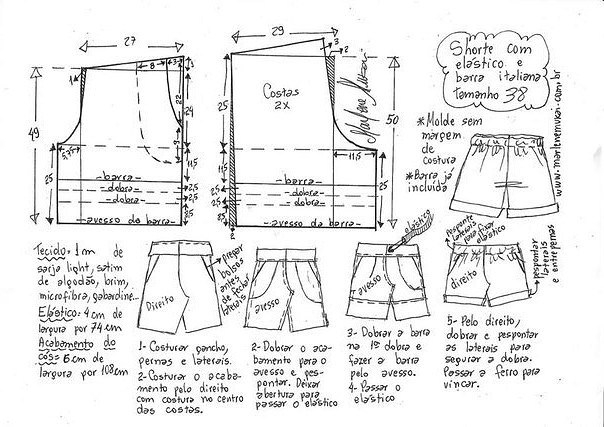 27
1
8
3
3
22
24
9
49
25
5,75
11,5
25
-barra-
-dobra-
-dobra-
-avesso da barra-
2,5
2,5
29
3
2
Costas
2X
Marlene Mukai
25
50
11,5
11,5
25
-barra-
-dobra-
-dobra-
avesso da barra
2,5
2,5
25
2
Shorte com
elástico e
barra italiana
tamanho 38
* Molde sem
margem
de
costura
* Barra já
incluída
www.marlenemukai.com.br
Tecido: 1 m de
sarja light, satim
de algodão, brim,
microfibra, gabardine...
Elástico: 4 cm de
largura por 74 cm
Acabamento do
cós: 6 cm de
largura por 108 cm
Direito
Pregar
bolsos
antes
de fechar
laterais
1- Costurar gancho,
pernas e laterais.
2- Costurar o acaba-
mento pelo direito
com costura no centro
das costas.
avesso
2- Dobrar o aca-
bamento para o
avesso e pes-
pontar. Deixar
abertura para
passar o elástico
elástico
avesso
3- Dobrar a barra
na 1ª dobra e
fazer a barra
pelo avesso.
4- Passar o
elástico
pesponte
laterais
para fixar
elástico
direito
pespontar
laterais
e entrepernas
5- Pelo direito,
dobrar e pespontar
as laterais para
segurar a dobra.
Passar a ferro para
vincar.